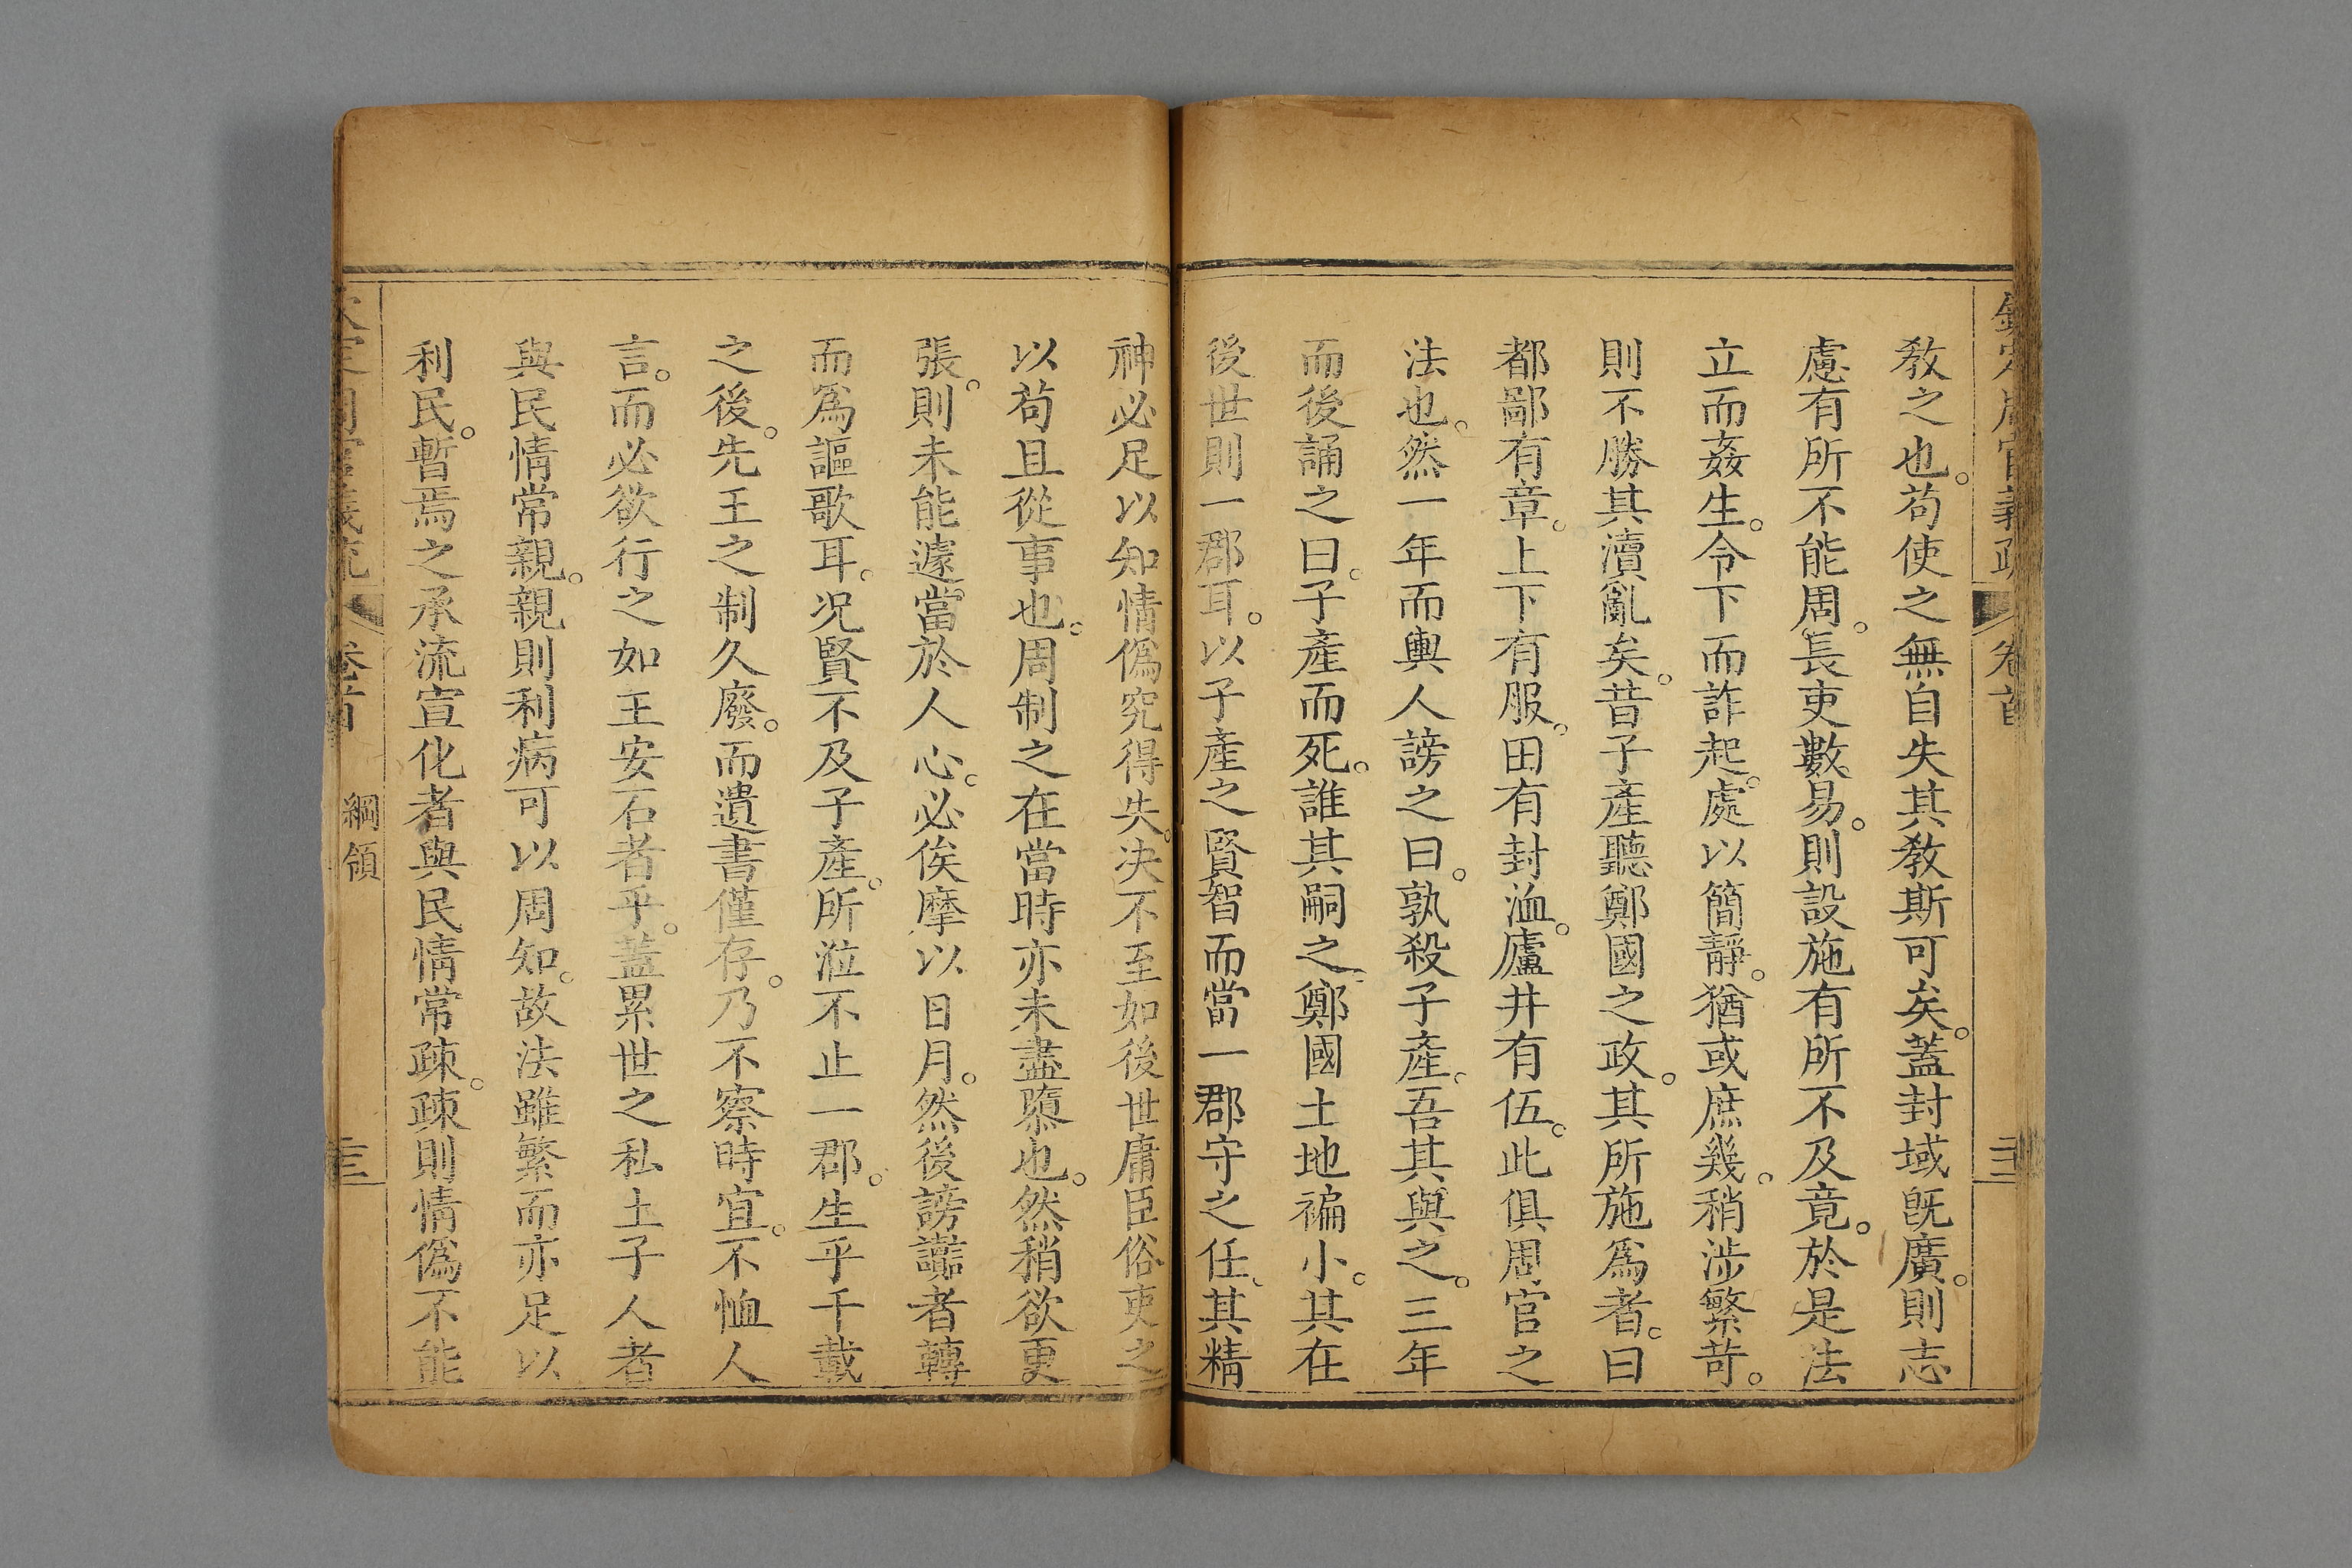 教之也。苟使之無自失其教斯可矣。蓋封域旣廣。則志
慮有所不能周。長吏數易。則設施有所不及竟。於是法
立而姦生。令下而詐起。處以簡靜。猶或庶幾。稍涉繁苛。
則不勝其瀆亂矣。昔子產聽鄭國之政。其所施爲者。曰
都鄙有章。上下有服。田有封洫。廬井有伍。此俱周官之
法也。然一年而輿人謗之曰。孰殺子產。吾其與之。三年
而後誦之曰。子產而死。誰其嗣之。鄭國土地褊小。其在
後世則一郡耳。以子產之賢智而當一郡守之任。其精
神必足以知情僞究得失。决不至如後世庸臣俗吏之
以苟且從事也。周制之在當時亦未盡隳也。然稍欲更
張。則未能遽當於人心。必俟摩以日月。然後謗讟者轉
而爲謳歌耳。况賢不及子產。所涖不止一郡。生乎千載
之後。先王之制久廢。而遺書僅存。乃不察時宜。不恤人
言。而必欲行之如王安石者乎。蓋累世之私土子人者
與民情常親。親則利病可以周知。故法雖繁而亦足以
利民。暫焉之承流宣化者與民情常疎。疎則情僞不能
卷首 綱領